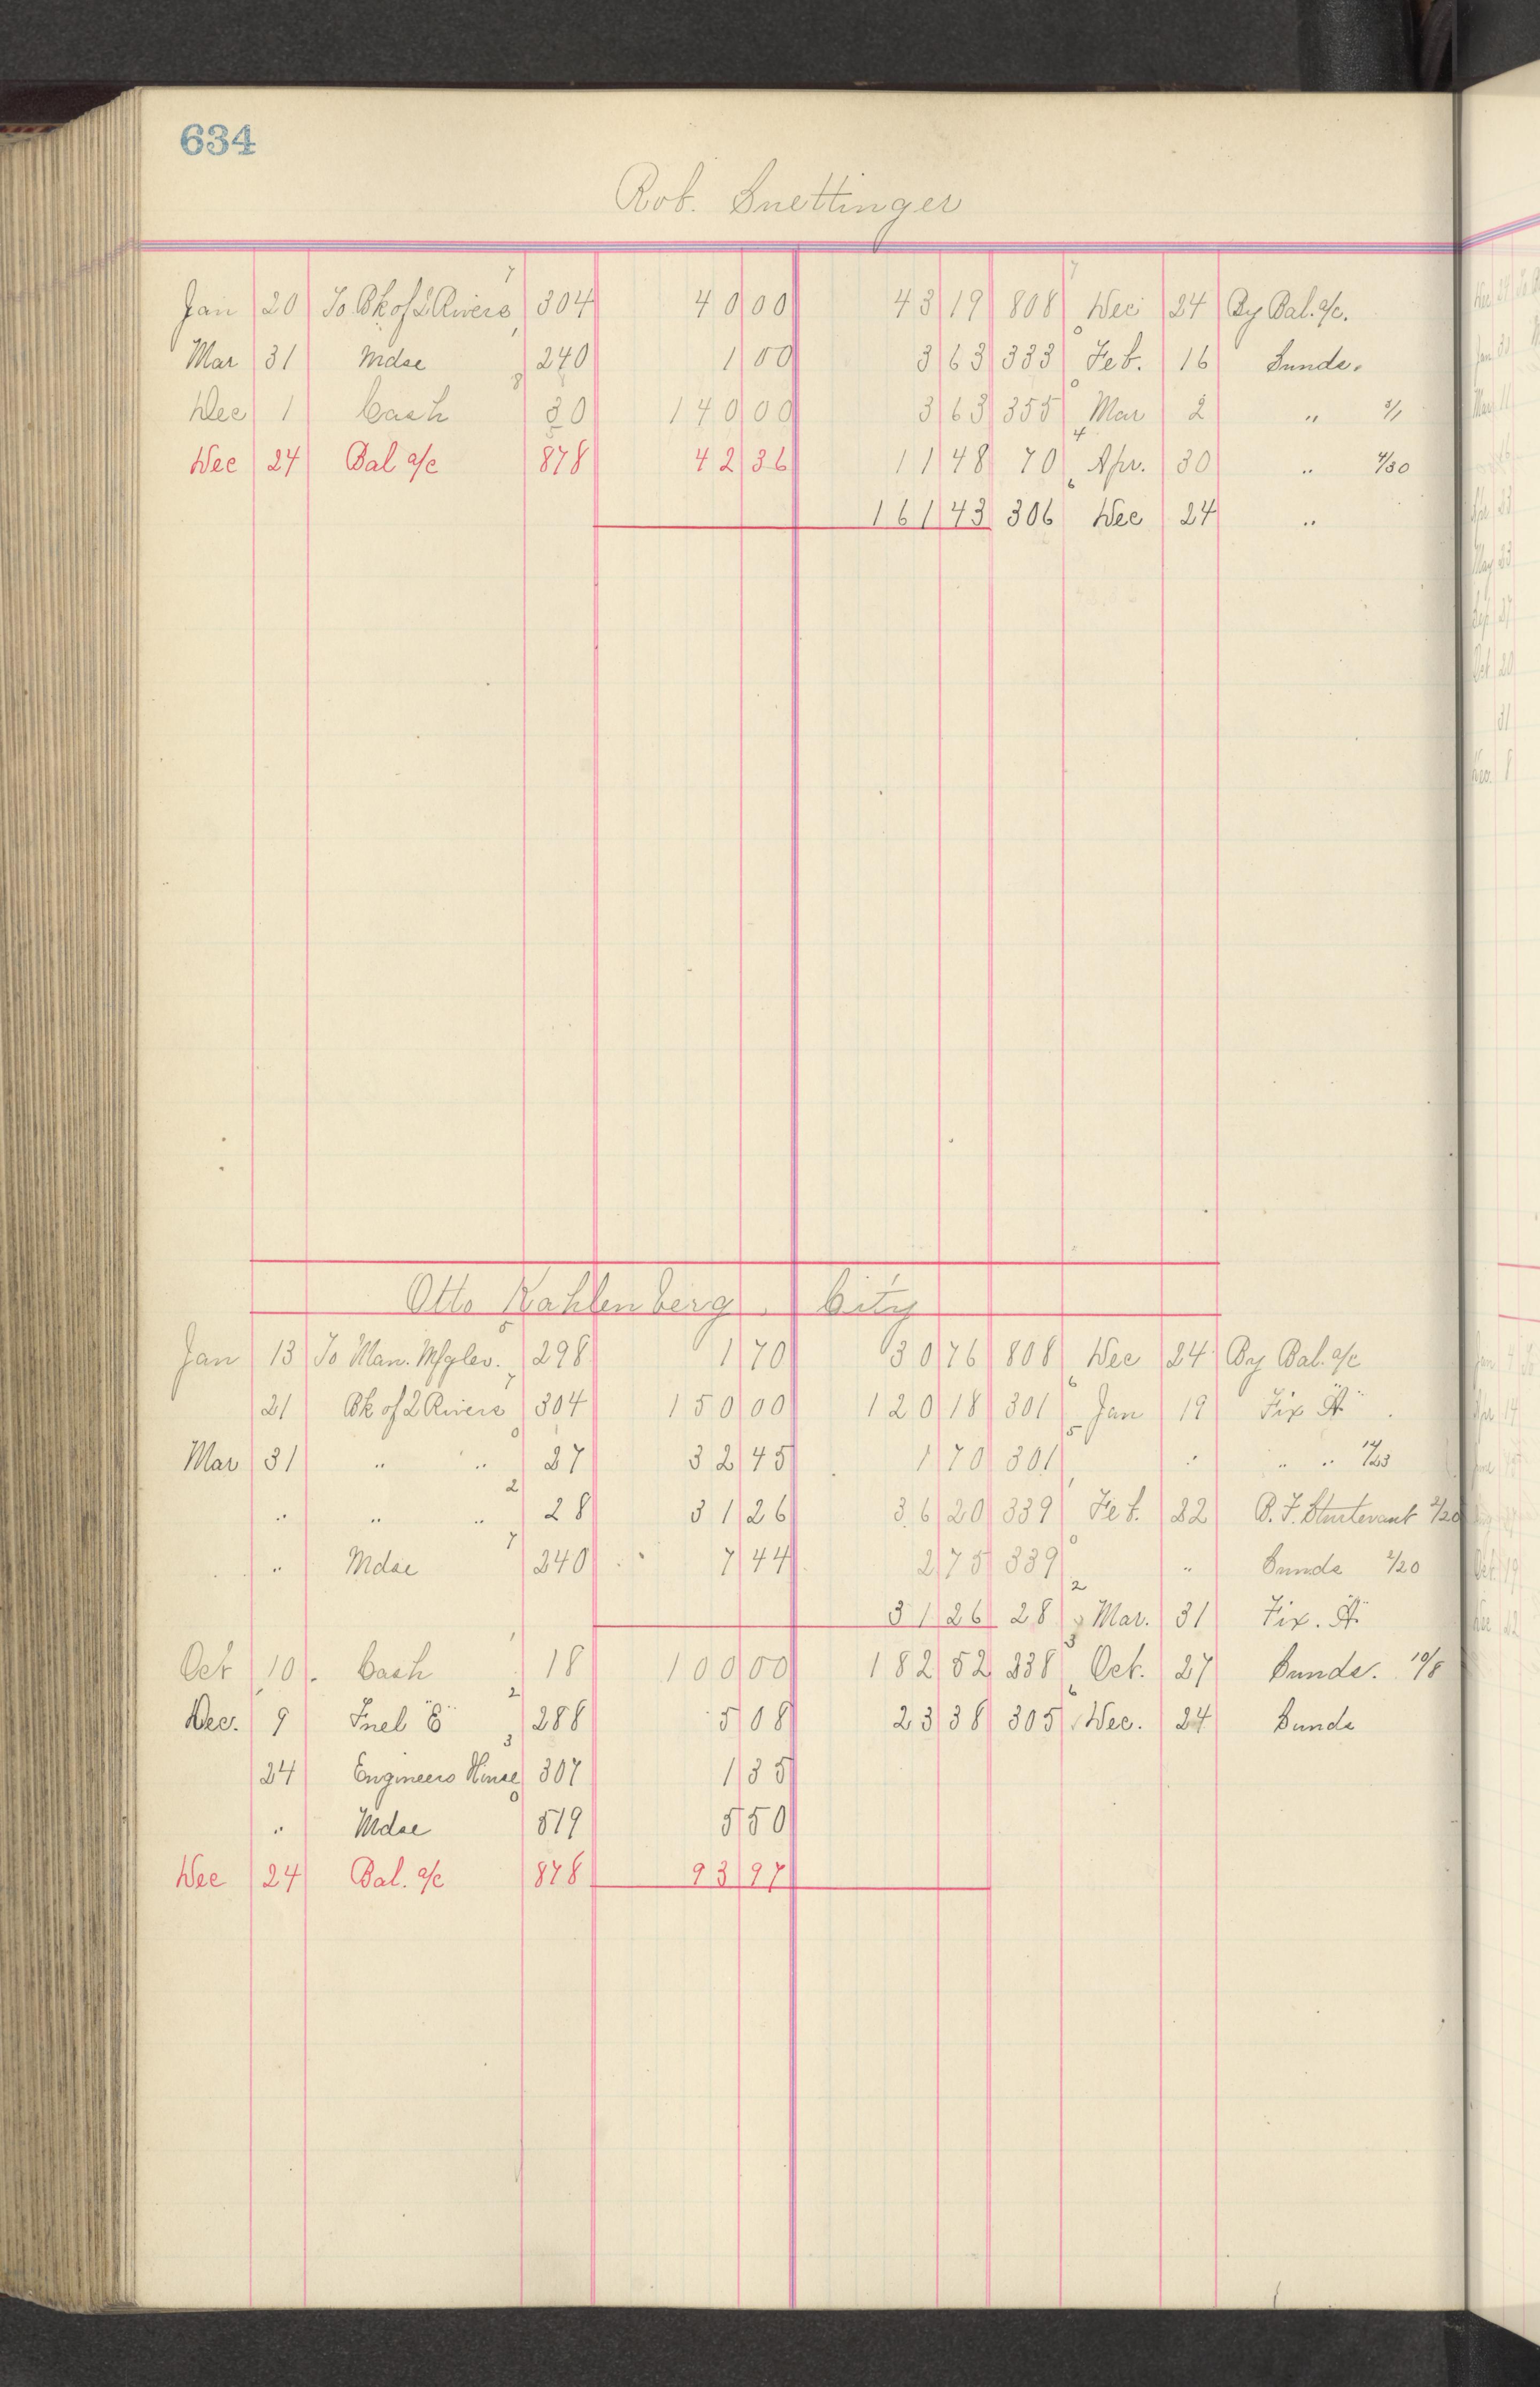 634
Rob. Suettinger
Jan 20 To Bk of 2 Rivers 7 304 40 00 43 19 808 7 Dec 24 By Bal. a/c.
Mar 31 Mdse 240 1 00 3 63 333 Feb. 16 Sunds.
Dec 1 Cash 8 30 140 00 3 63 355 0 Mar 2 " 3/1
Dec 24 Bal a/c 878 42 36 11 48 70 4 Apr. 30 " 4/30
161 43 306 6 Dec 24 "
Otto Kahlenberg. City
Jan 13 To Man. Mfg 298 1 70 30 76 808 Dec 24 By Bal. a/c
21 Bk of 2 Rivers 7 304 150 00 120 18 301 6 Jan 19 Fix A
Mar 31 " " 27 32 45 1 70 301 5 " " "
" " " 2 28 31 26 36 20 339 Feb. 22 B. F. Sturtevant 2/20
" Mdse 7 240 7 44 2 75 339 0 " Sunds 2/20
31 26 28 2 Mar. 31 Fix. A
Oct 10. Cash 18 100 00 182 52 238 3 Oct. 27 Sunds. 10/8
Dec. 9 Fuel "B" 2 288 5 08 23 38 305 6 Dec. 24 Sunds
24 Engineers House 3 307 1 35
" Mdse 0 519 5 50
Dec 24 Bal. a/c 878 93 97